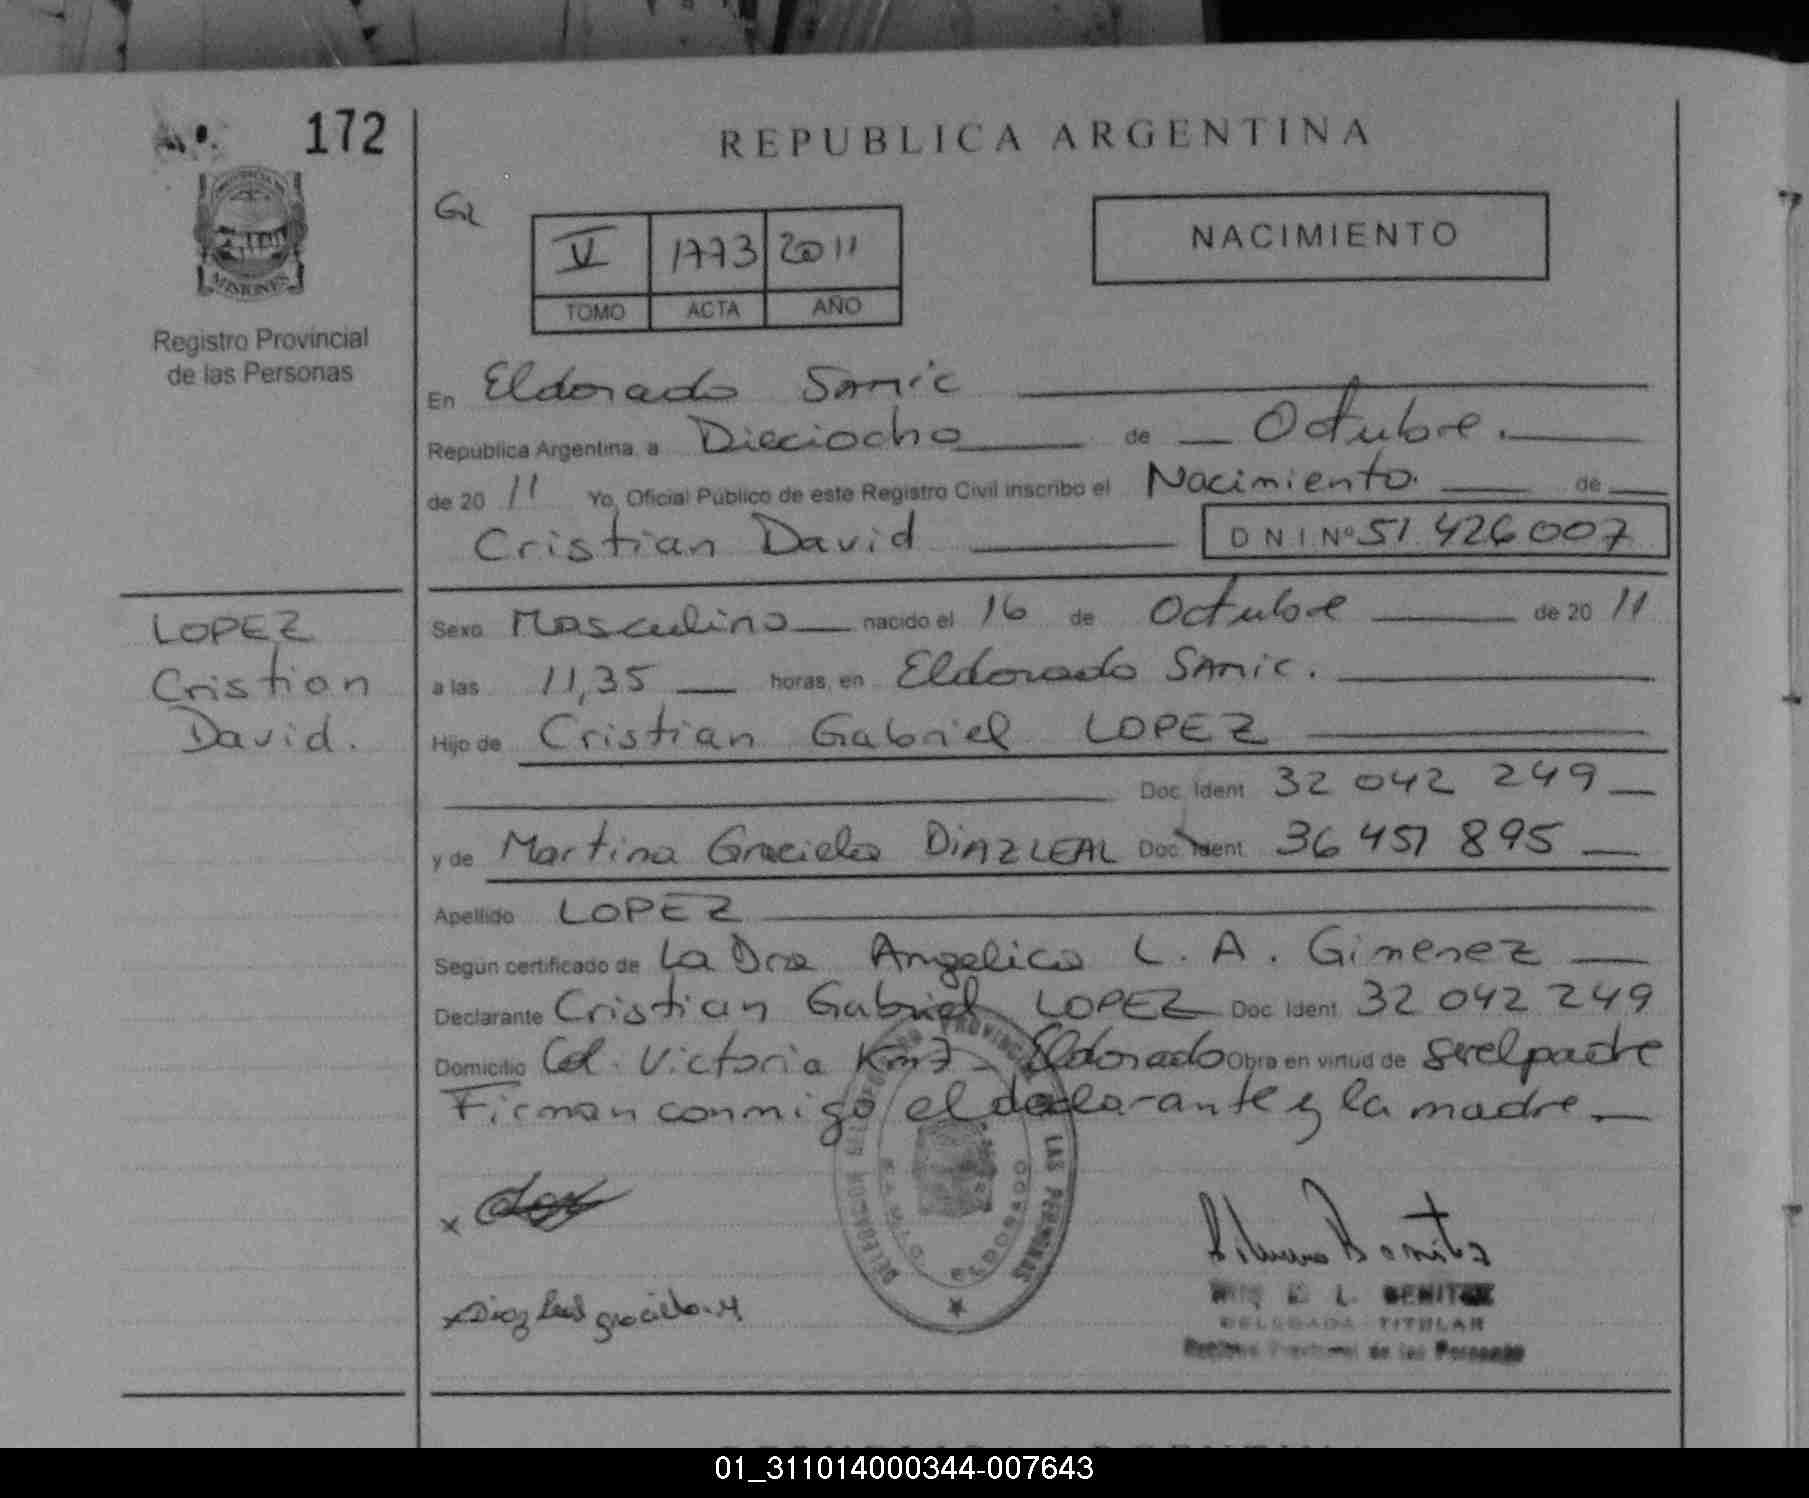 172
REPUBLICA ARGENTINA
MISIONES
Registro Provincial
de las Personas
V 1773 2011
TOMO ACTA AÑO
NACIMIENTO
En Eldorado SAMIC
República Argentina, a Dieciocho de Octubre.
de 20 11 Yo, Oficial Público de este Registro Civil inscribo el Nacimiento. de
Cristian David DNI Nº 51 426 007
LOPEZ
Cristian
David.
Sexo Masculino nacido el 16 de Octubre de 20 11
a las 11,35 horas, en Eldorado SAMIC.
Hijo de Cristian Gabriel LOPEZ
Doc. Ident 32 042 249
y de Martina Graciela DIAZ LEAL Doc. Ident 36 451 895
Apellido LOPEZ
Según certificado de La Dra Angelica L. A. Gimenez
Declarante Cristian Gabriel LOPEZ Doc. Ident 32 042 249
Domicilio Col. Victoria Km 7 - Eldorado Obra en virtud de ser el padre
Firman conmigo el declarante y la madre
x
x Diaz Leal graciela. M
BENITEZ
DELEGADA TITULAR
de las Personas
01_311014000344-007643